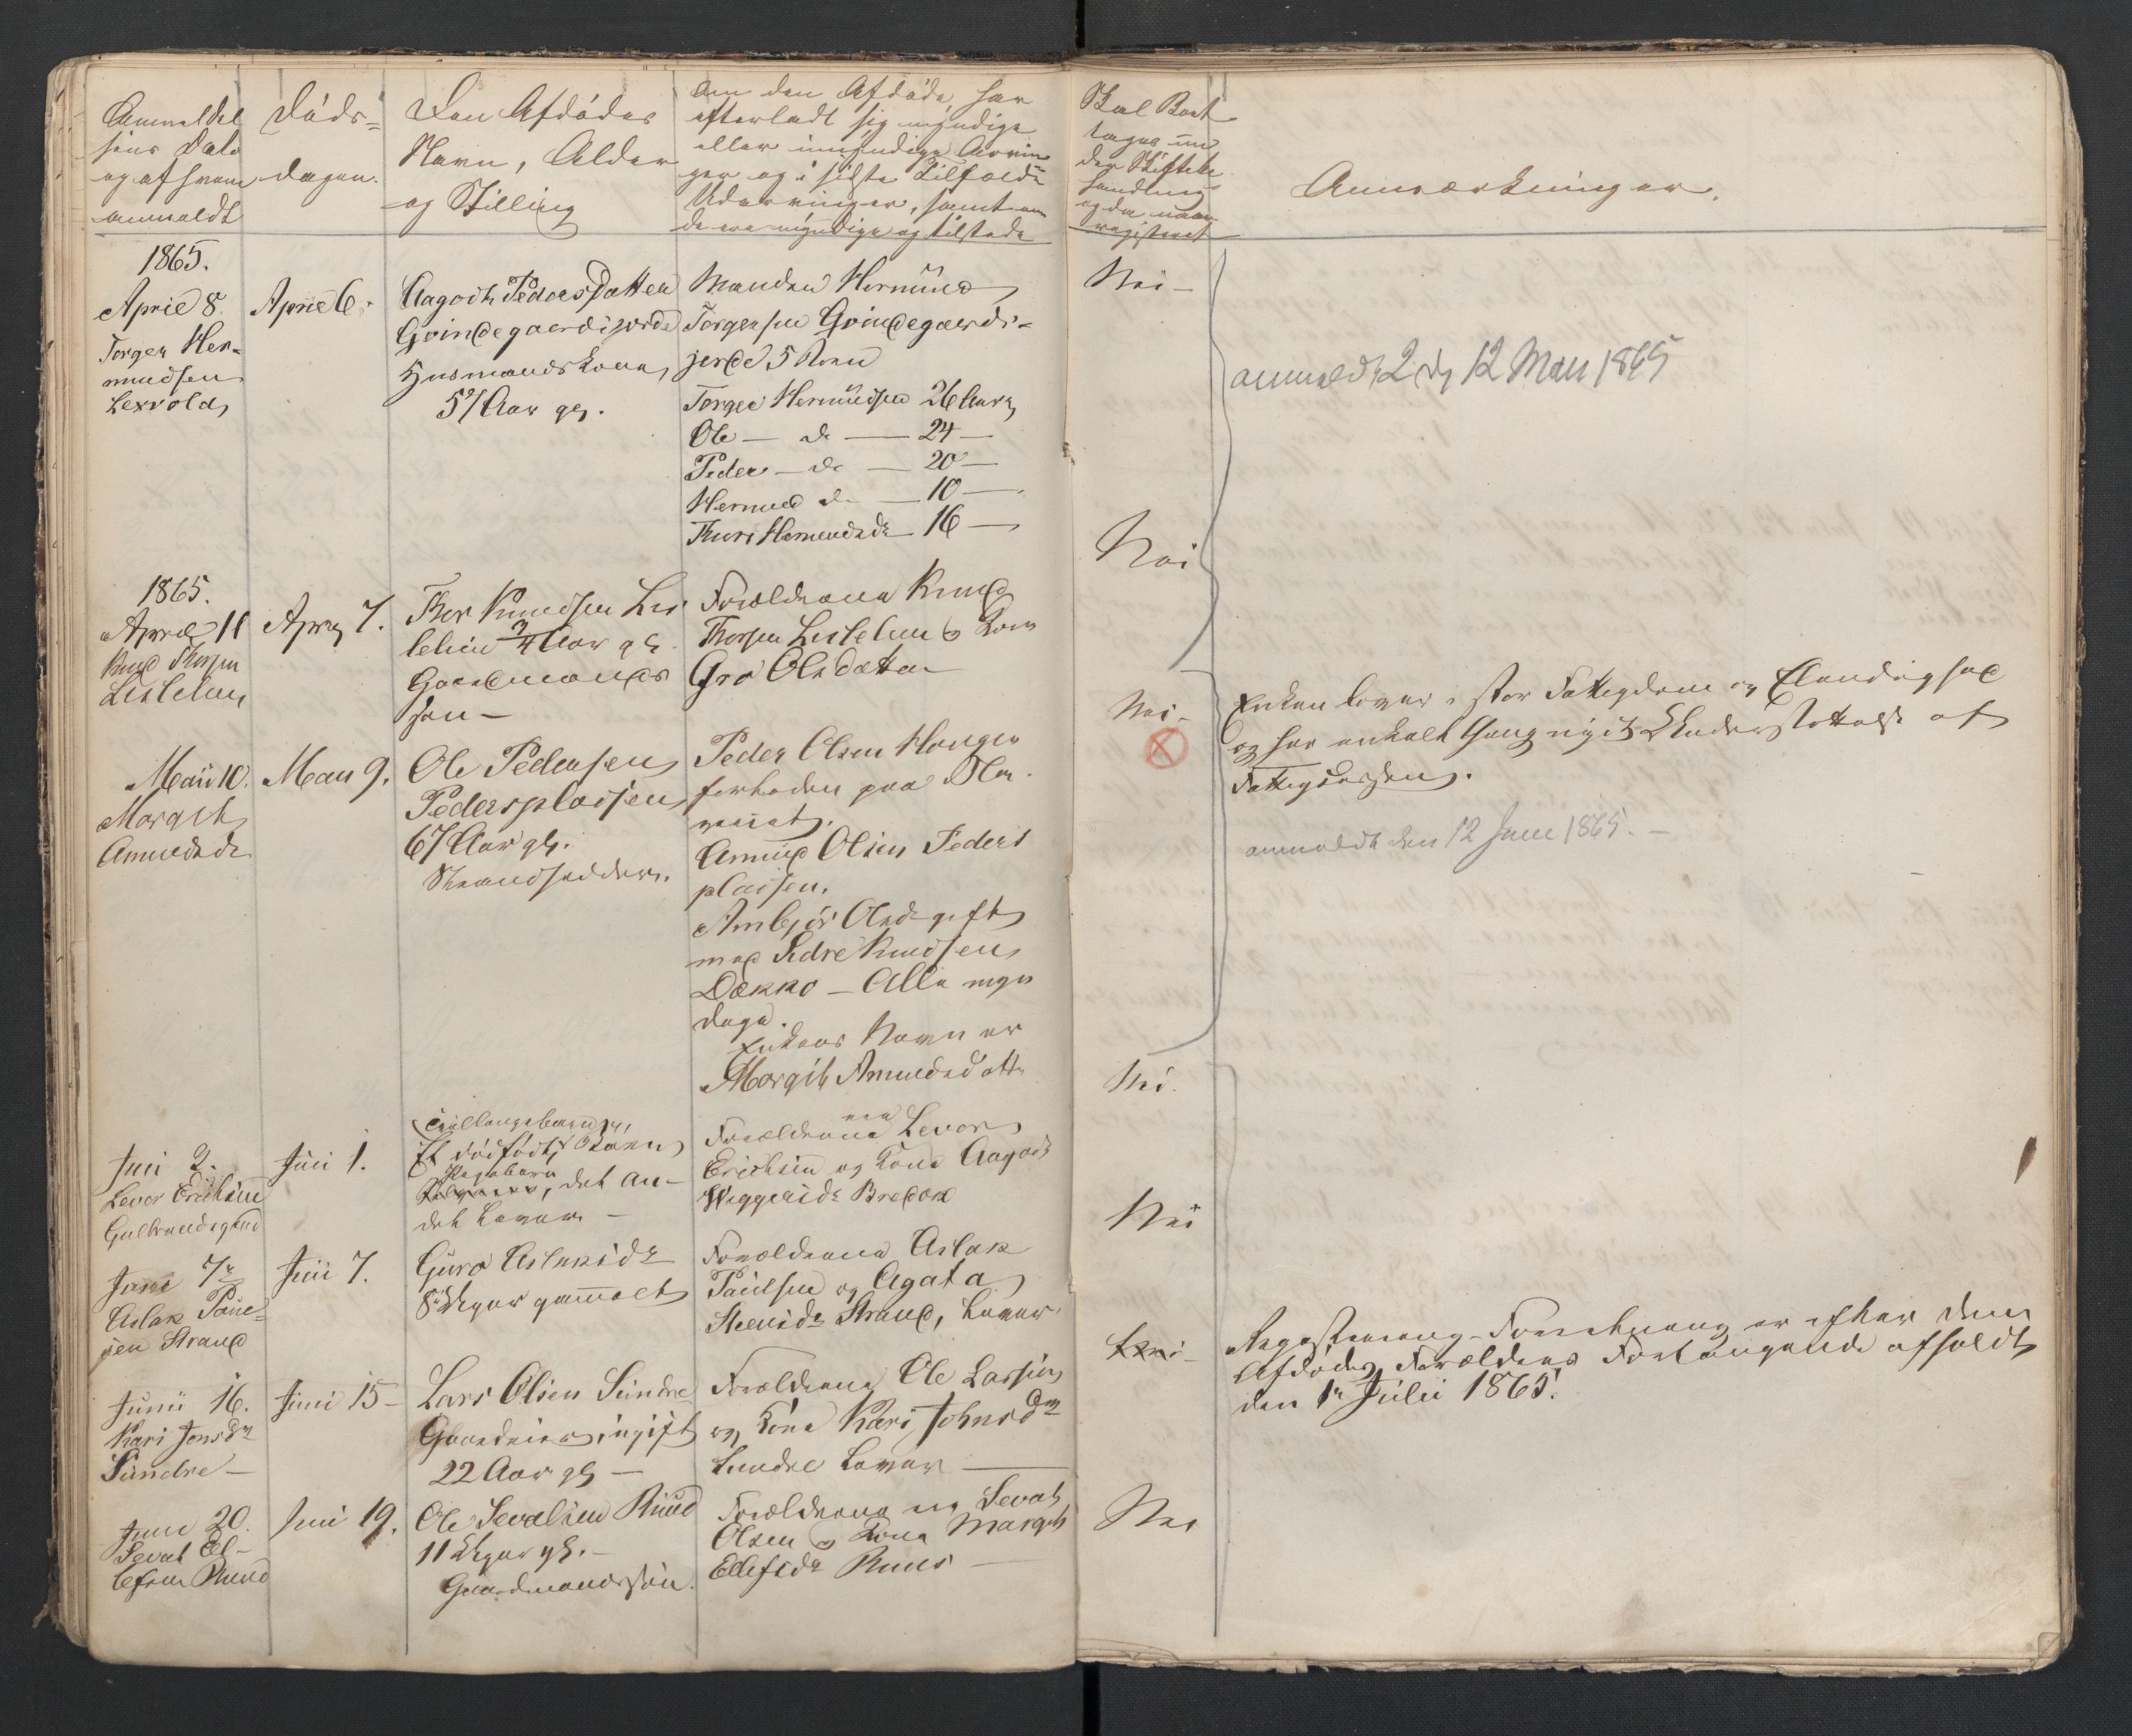 Anmeldel
sens Dato
og af hvem
anmeldt
Døds=
dagen.
Den Afdødes
Navn, Alder
og Stilling
Om den Afdøde har
efterladt sig myndige
eller umyndige Arvin
ger og i sidste Tilfælde
Udarvinger, samt om
de ere myndige og tilstede
Skal Boet
tages un
der Skiftebe
handling
og da naar
registreret
Anmærkninger.
1865.
April 8.
Torger Her-
mundsen
Lexvold
April 6.
Aagoth PedersDatter
Grindegaardsjorde
Huusmandskone,
51 Aar gl.
Manden Hermund
Torgersen Grindegaards-
jorde 5 Børn
Torger Hermundsen 26 Aar
Ole — do — 24 —
Peder — do — 20 —
Hermund do — 10 —
Thuri Hermundsdr 16 —
Nei —
anmeldt 2 d 12 Mai 1865
1865.
April 11
Knud Thorsen
Lislelien
April 7.
Thor Knudsen Lis
lelien 3/4 Aar gl.
Gaardmands
søn —
Forældrene Knud
Thorsen Lislelien og Kone
Gro OlsDatter
Nei
Mai 10.
Margith
Amundsdr
Mai 9.
Ole Pedersen
Pedersplassen
67 Aar gl.
Strandsidder.
Peder Olsen
paa
Amund Olsen Peders
plassen.
Ambjør Olsdr gift
med Sidre Knudsen
Dokko — Alle myn
dige.
Enkens Navn er
Margith Amundsdatter
Nei —
Enken lever i stor Fattigdom og Elendighed
og har enkelt Gang nydt Understøttelse af
Fattigkassen.
anmeldt den 12 Juni 1865. —
Juni 2.
Levor Erichsen
Gulbrandsgaard
Juni 1.
Tvillingebarn,
Et dødfødt Barn
Pigebarn
, det an-
det Lever. —
Forældrene Levor
Erichsen og Kone Aagoth
Viggersdr
Nei.
Juni 7de
Aslak Paul=
sen Strand
Juni 7.
Guro Aslaksdr
8 Uger gammelt
Forældrene Aslak
Paulsen og Agata
Steensdr Strand, Lever
Nei
Juni 16.
Kari Jonsdr
Sundre —
Juni 15 —
Lars Olsen Sundre
Gaardeier, ugift
22 Aar gl —
Forældrene Ole Larsen
og Kone Kari Johnsdr
Sundre Lever —
Registrering-Forretning er efter den
Afdødes Forældres Forlangende afholdt
den 1ste Julii 1865.
Juni 20.
Sevat El-
lefsen Ruud
Juni 19.
Ole Sevatsen Ruud
11 Uger gl. —
Gaardmandssøn.
Forældrene Sevat
Olsen og Kone Margith
Ellefsdr Ruud —
Nei